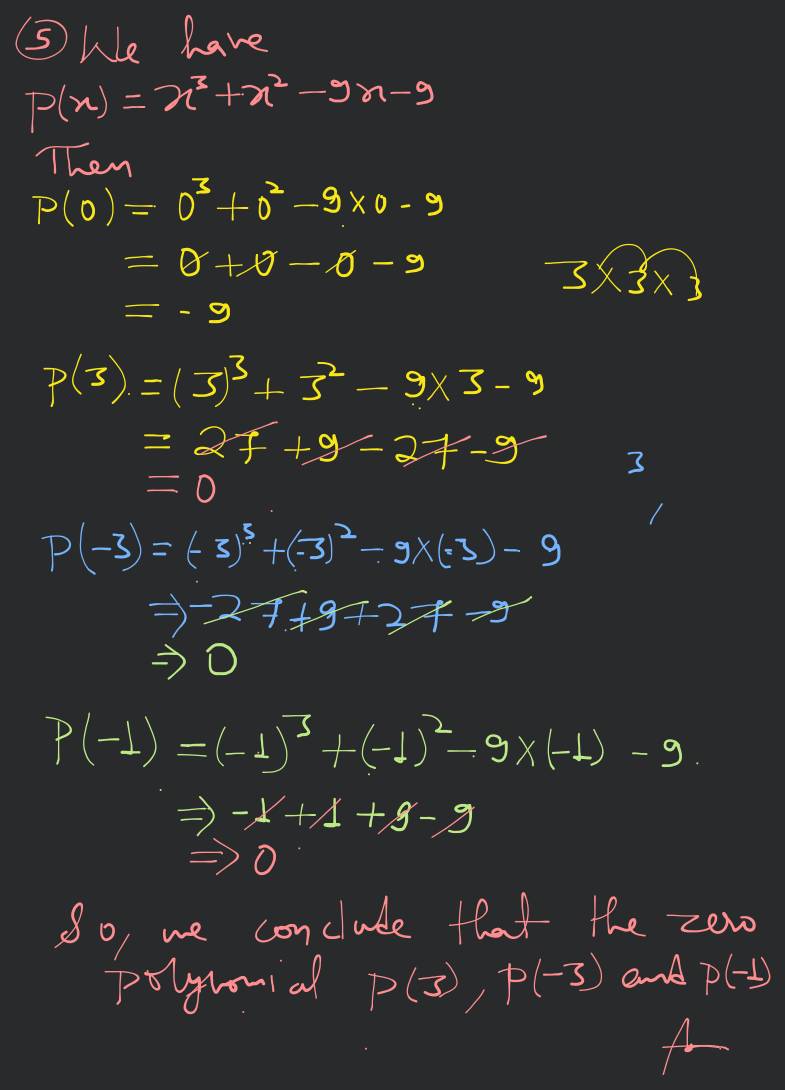 ⑤ We have
P(x) = x³ + x² - 9x - 9
Then
P(0) = 0³ + 0² - 9 × 0 - 9
= 0 + 0 - 0 - 9
3 × 3 × 3
= - 9
P(3) = (3)³ + 3² - 9 × 3 - 9
= 27 + 9 - 27 - 9
3
= 0
P(-3) = (-3)³ + (-3)² - 9 × (-3) - 9
⇒ -27 + 9 + 27 - 9
⇒ 0
P(-1) = (-1)³ + (-1)² - 9 × (-1) - 9.
⇒ -1 + 1 + 9 - 9
⇒ 0
So, we conclude that the zero
polynomial P(3), P(-3) and P(-1)